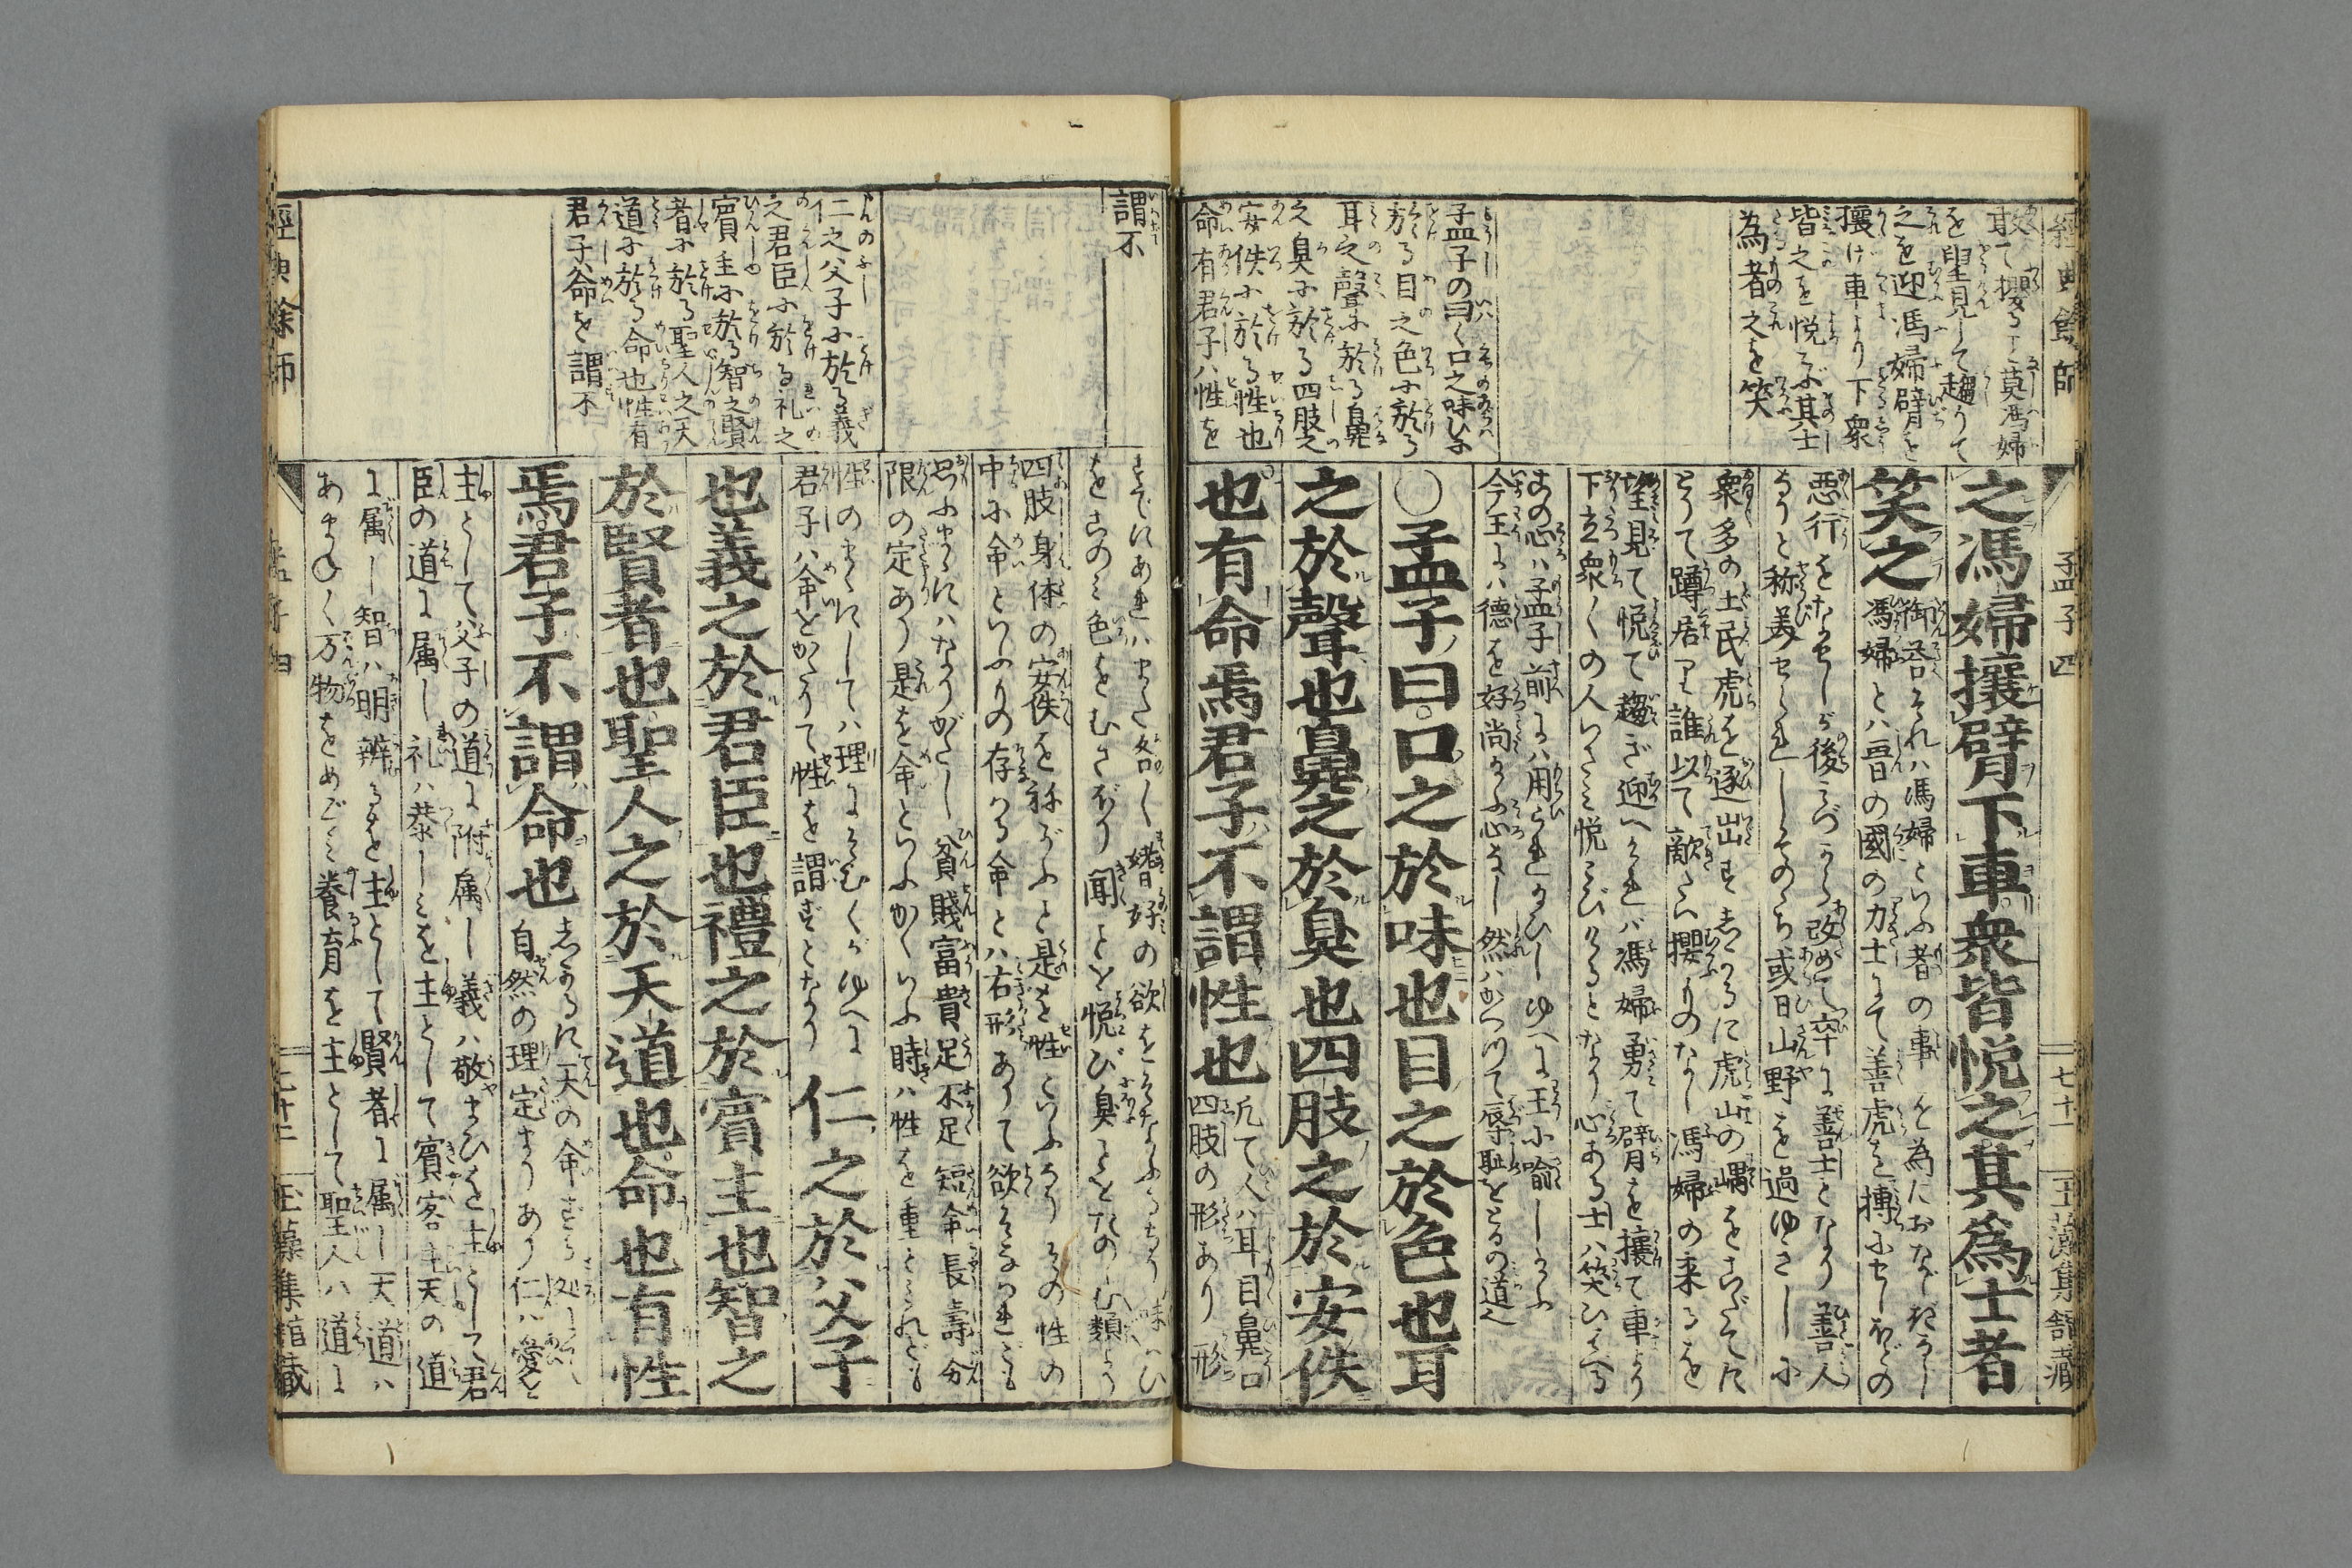 經典餘師
孟子四
七十一
玉藻集館藏
敢て攖る莫馮婦
を望見して趨りて
之を迎馮婦臂を
攘け車より下衆
皆之を悦ぶ其士
為者之を笑
孟子の曰く口之味ひに
於る目之色に於る
耳之聲に於る鼻
之臭に於る四肢之
安佚に於る性也
命有君子ハ性を
之馮婦攘臂下車衆皆悦之其爲士者
笑之
御荅それハ馮婦といふ者の事を為におなじ
馮婦とハ晋の國の力士にて善虎を搏にせしほどの
悪行をなせしが後みづから改めて卒に善士となり善人
なりと称美せられしそのゝち或日山野を過ゆきしに
衆多の土民虎を逐出すしかるに虎山の嵎をこだてに
とりて蹲居り誰以て敵たい攖ものなし馮婦の来るを
望見て悦て趨ぎ迎へければ馮婦勇て臂を攘て車より
下立衆くの人いさみ悦こびけるとなり心ある士ハ笑ひける
この心ハ孟子前にハ用られたひしゆへに王に喩し
今王にハ德を好尚たふ心なし然ハかへつて辱耻をとるの道へ
○孟子曰口之於味也目之於色也耳
之於聲也鼻之於臭也四肢之於安佚
也有命焉君子不謂性也
凢て人ハ耳目鼻口
四肢の形あり形
謂不
仁之父子に於る義
之君臣に於る礼之
賓主に於る智之賢
者に於る聖人之天
道に於る命也性有
君子命を謂不
すでにあれハまた各〳〵嗜好の欲をそなふるなり味ハひ
をこのみ色をむさぼり聞ことを悦び臭ことをたのしむ類より
四肢身体の安佚をねがふこと是を性といふなりその性の
中に命といふもの存する命とハ右形ありて欲そなはれども
思ふまゝにハなりがたし貧賤富貴足不足短命長壽分
限の定あり是を命といふかくいふ時ハ性を重とみれども
性のまゝにしてハ理にそむくがゆへに
君子ハ命をかたりて性を謂ずとなり
仁之於父子
也義之於君臣也禮之於賓主也智之
於賢者也聖人之於天道也命也有性
焉君子不謂命也
しかるに天の命ずる処
自然の理定まりあり仁ハ愛を
主として父子の道に附属し義ハ敬まひを主として君
臣の道に属し礼ハ恭しみを主として賓客主天の道
に属し智ハ明辨るを主として賢者に属し天道ハ
あまねく万物をめぐみ養育を主として聖人ハ道に
經典餘師
孟子四
七十二
玉藻集館藏